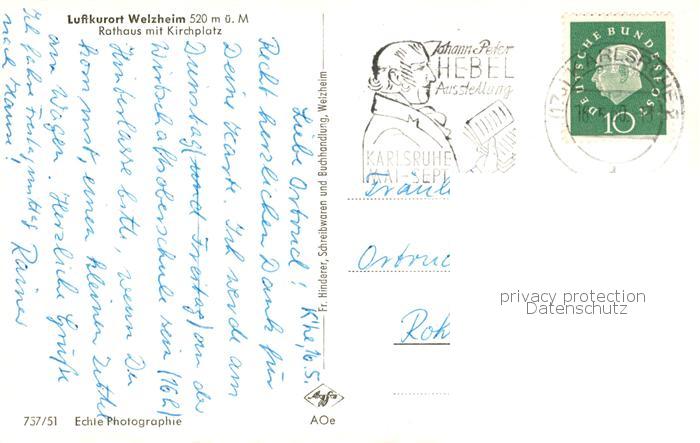 Luftkurort Welzheim 520 m ü. M
Rathaus mit Kirchplatz
Liebe Ortrud! K'he, 16.5.
Recht herzlichen Dank für
Deine Karte. Ich werde am
Dienstag (und Freitag) an der
Wirtschaftsoberschule sein (16h)
Hinterlasse bitte, wenn Du
kommst, einen kleinen Zettel
am Wagen. Herzliche Grüße
Rainer
Ich fahre Freitagmittag
nach Hause!
Fr. Hinderer, Schreibwaren und Buchhandlung, Welzheim
Johann Peter
HEBEL
Ausstellung
KARLSRUHE
MAI-SEPT
DEUTSCHE BUNDESPOST
10
KARLSRUHE
Fräul
Ortrud
Roh
privacy protection
Datenschutz
Agfa
737/51 Echte Photographie AOe